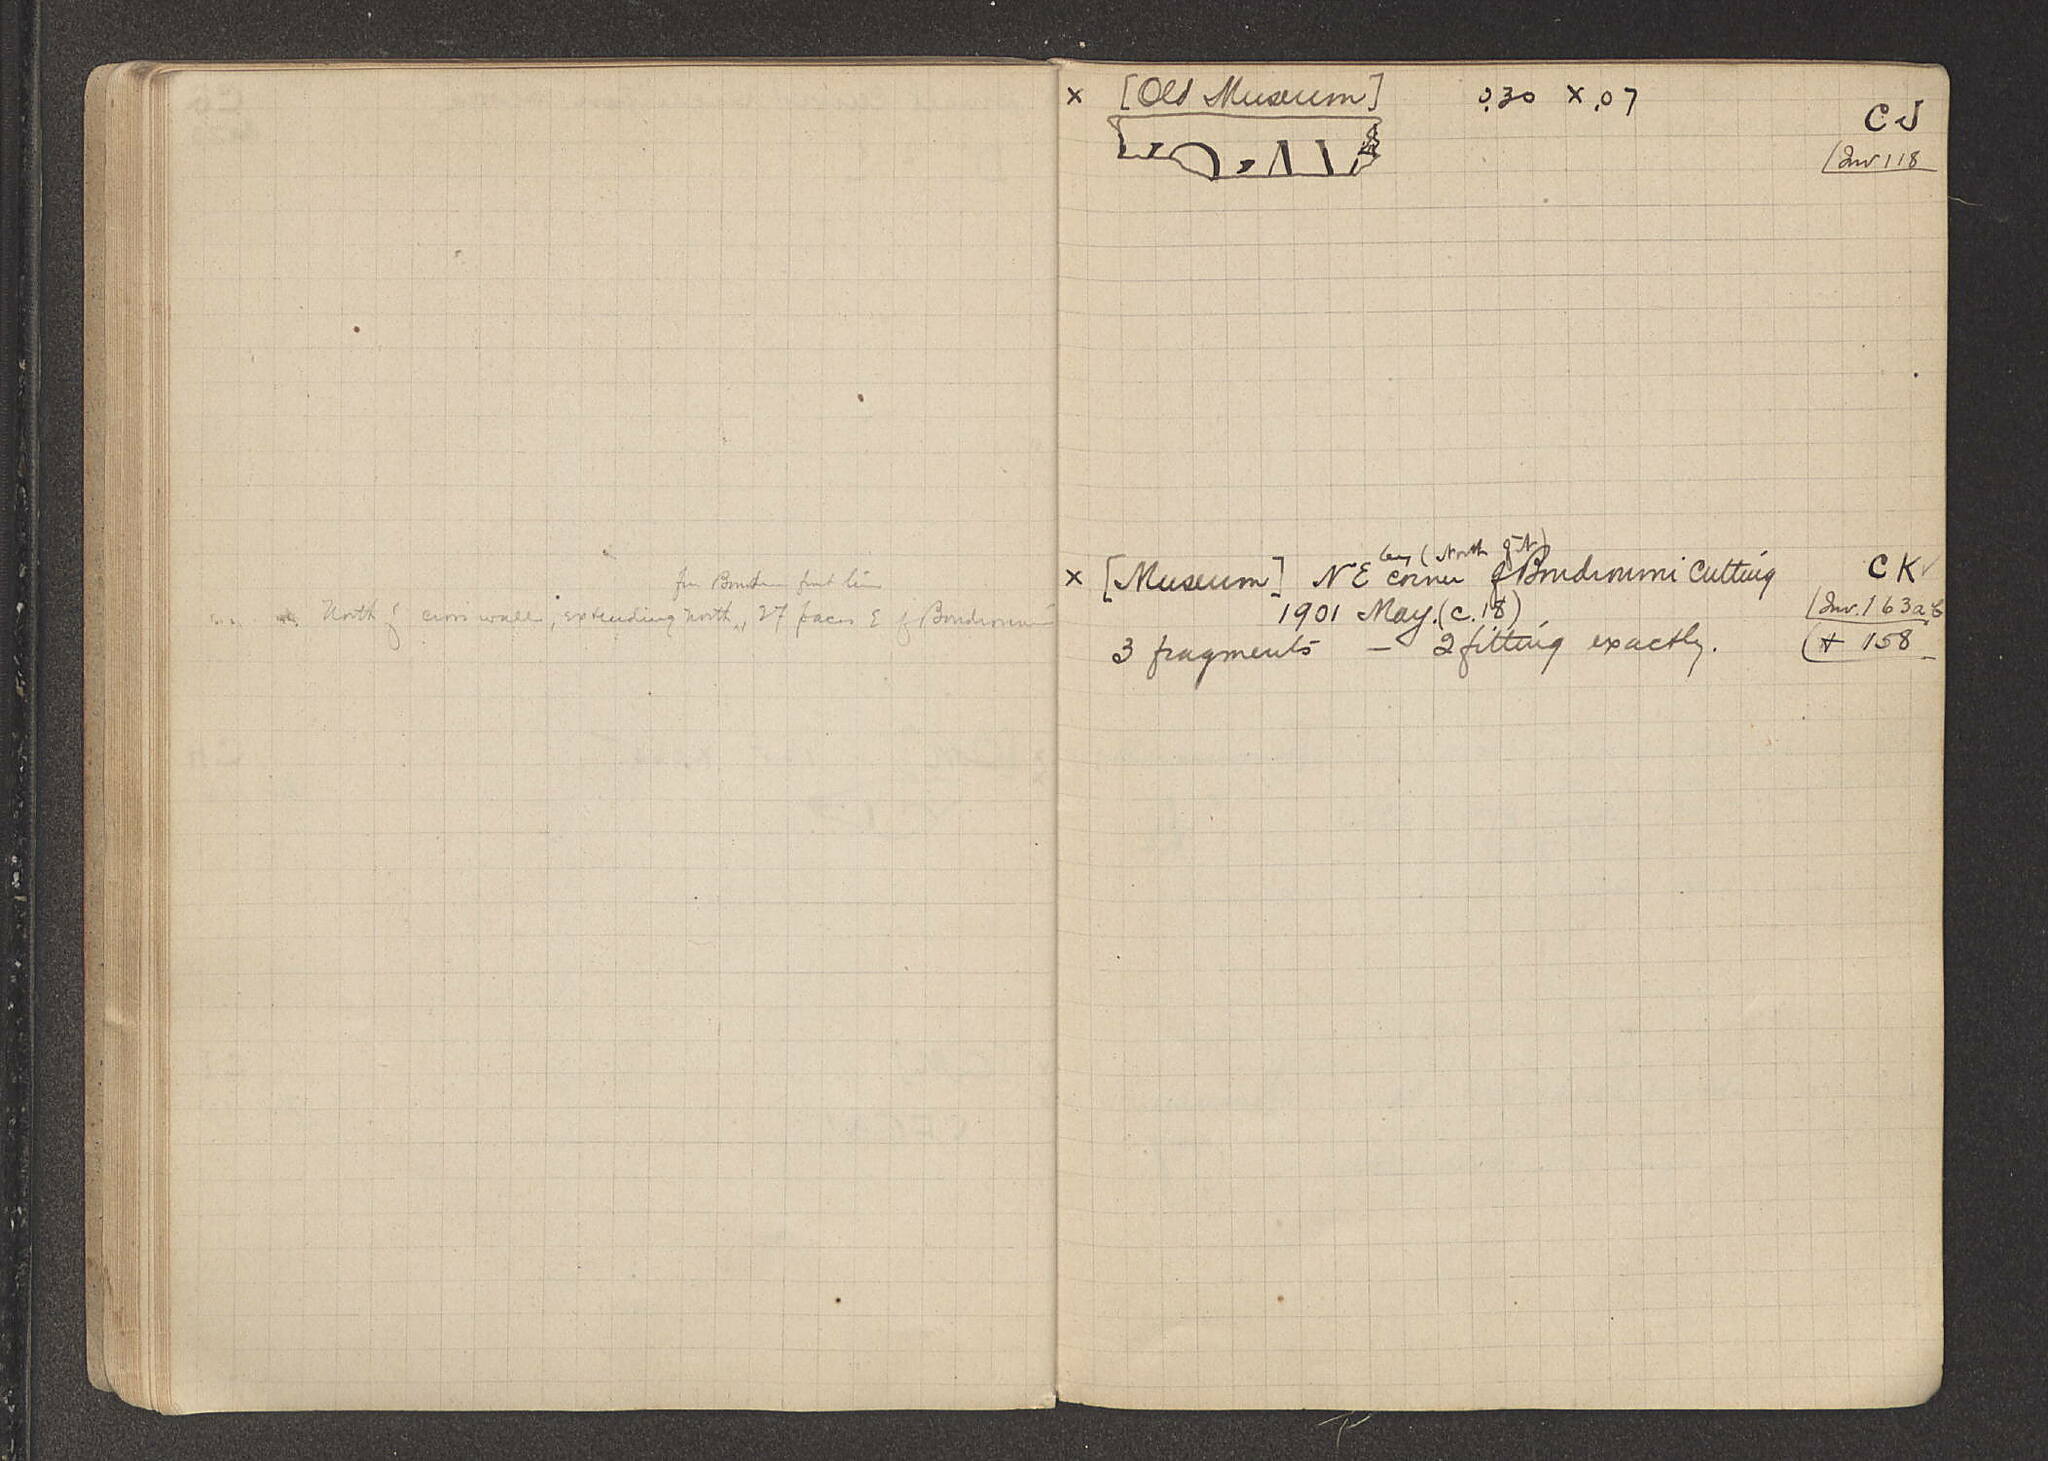 North of cross wall, extending north, 27 paces E of Boudroumi
× [Old Museum] 0.30 × .07
CJ
Inv 118
(North of it)
× [Museum] NE corner of Boudroumi Cutting CK
1901 May. (c. 18) Inv. 163a,b
3 fragments – 2 fitting exactly. + 158